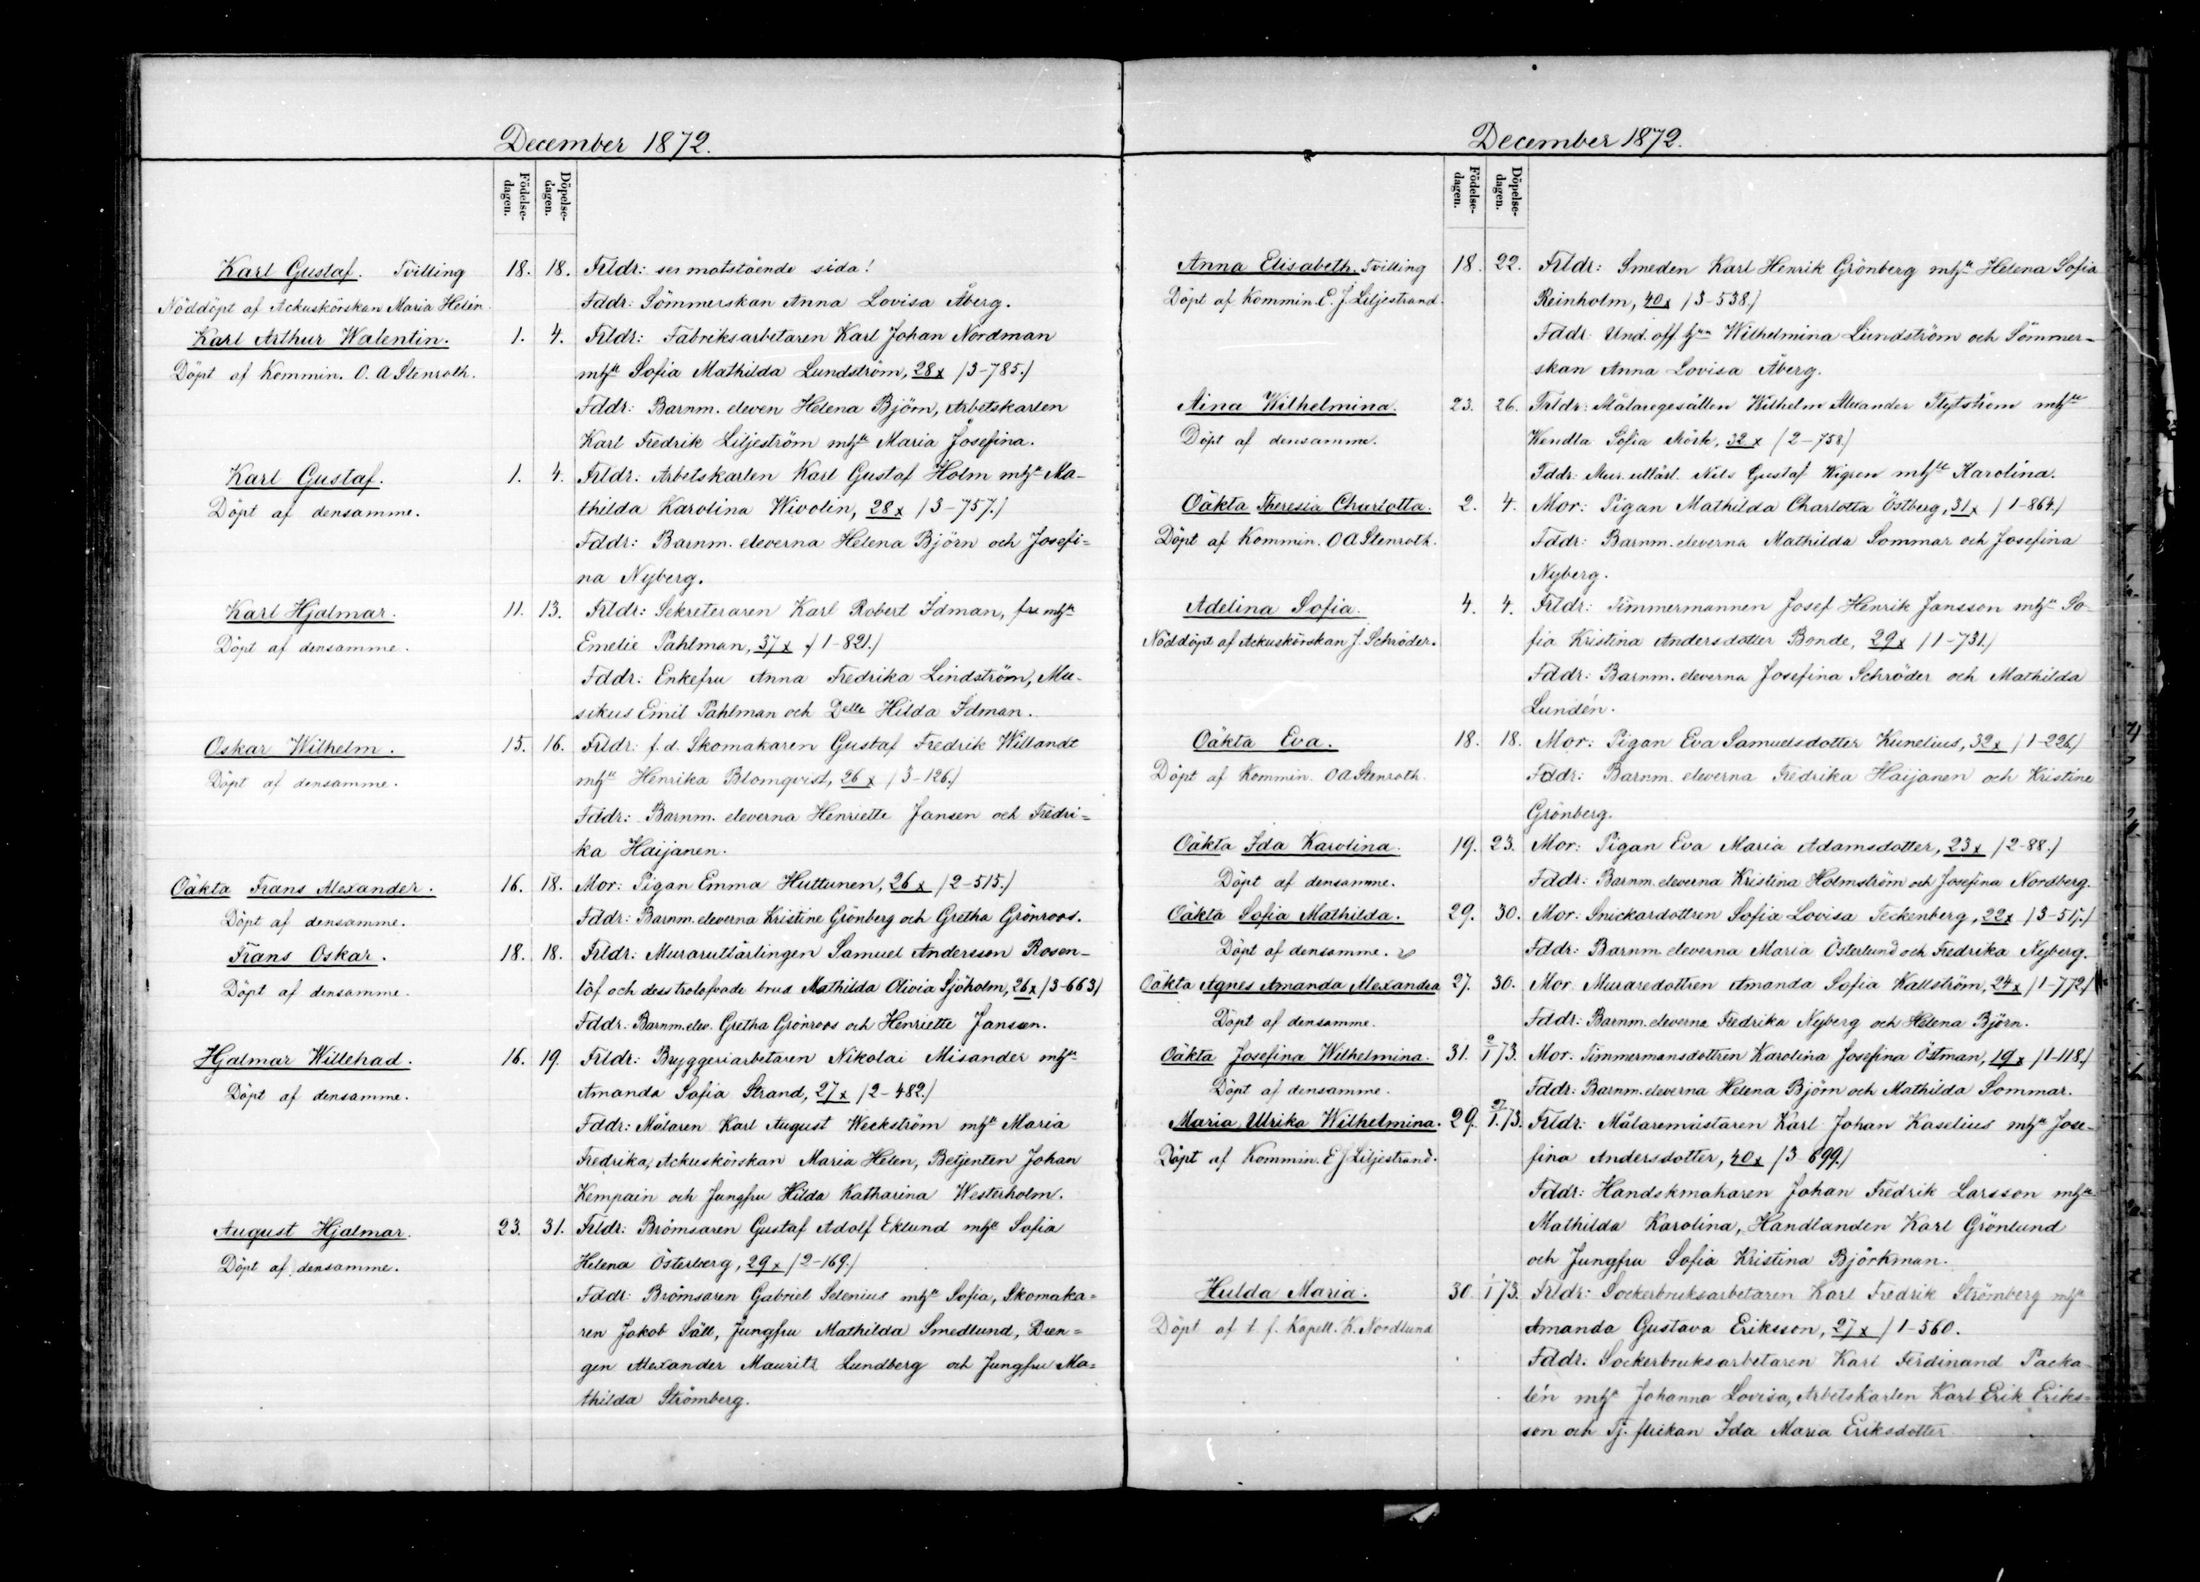 December 1872.
Födelse-dagen.
Döpelse-dagen.
Karl Gustaf. Tvilling 18. 18. Frldr: ser motstående sida!
Nöddöpt af Ackuskörskan Maria Helén. Fddr: Sömmerskan Anna Lovisa Åberg.
Karl Arthur Walentin. 1. 4. Frldr: Fabriksarbetaren Karl Johan Nordman
Döpt af Kommin. O. A Stenroth. mhu Sofia Mathilda Lundström, 28 x /3-785./
Fddr: Barnm. eleven Helena Björn, Arbetskarlen
Karl Fredrik Liljeström mhu Maria Josefina.
Karl Gustaf. 1. 4. Frldr: Arbetskarlen Karl Gustaf Holm mhu Ma-
Döpt af densamme. thilda Karolina Wivolin, 28 x /3-757./
Fddr: Barnm. eleverna Helena Björn och Josefi=
na Nyberg.
Karl Hjalmar. 11. 13. Frldr: Sekreteraren Karl Robert Idman, fru mhu
Döpt af densamme. Emelie Pahlman, 37 x /1-821./
Fddr: Enkefru Anna Fredrika Lindström, Mu-
sikus Emil Pahlman och Delle Hilda Idman.
Oskar Wilhelm. 15. 16. Frldr: f.d. Skomakaren Gustaf Fredrik Willandt
Döpt af densamme. mhu Henrika Blomqvist, 26 x /3-126./
Fddr: Barnm. eleverna Henriette Jansen och Fredri=
ka Haijanen.
Oäkta Frans Alexander. 16. 18. Mor: Pigan Emma Huttunen, 26 x /2-515./
Döpt af densamme. Fddr: Barnm. eleverna Kristine Grönberg och Gretha Grönroos.
Frans Oskar. 18. 18. Frldr: Murarutlärlingen Samuel Andersson Rosen-
Döpt af densamme. löf och dess trolofvade brud Mathilda Olivia Sjöholm, 26 x /3-663/
Fddr: Barnm. elev. Gretha Grönroos och Henriette Jansen.
Hjalmar Willehad. 16. 19. Frldr: Bryggeriarbetaren Nikolai Misander mhu
Döpt af densamme. Amanda Sofia Strand, 27 x /2-482./
Fddr: Målaren Karl August Weckström mhu Maria
Fredrika, Ackuskörskan Maria Helen, Betjenten Johan
Kempain och Jungfru Hilda Katharina Westerholm.
August Hjalmar. 23. 31. Frldr: Brömsaren Gustaf Adolf Eklund mhu Sofia
Döpt af densamme. Helena Österberg, 29 x /2-169./
Fddr: Brömsaren Gabriel Selenius mhu Sofia, Skomaka=
ren Jakob Säll, Jungfru Mathilda Smedlund, Dren=
gen Alexander Mauritz Lundberg och Jungfru Ma=
thilda Strömberg.
December 1872.
Födelse-dagen.
Döpelse-dagen.
Anna Elisabeth. Tvilling 18. 22. Frldr: Smeden Karl Henrik Grönberg mhu Helena Sofia
Döpt af Kommin. E. J. Liljestrand. Reinholm, 40 x /3-538./
Fddr: Und. off. Wilhelmina Lundström och Sömmer=
skan Anna Lovisa Åberg.
Aina Wilhelmina. 23. 26. Frldr: Målaregesällen Wilhelm Alexander Flytström mhu
Döpt af densamme. Wendla Sofia Mörk, 32 x /2-758./
Fddr: Mur. utlärl. Nils Gustaf Wigren mhu Karolina.
Oäkta Theresia Charlotta. 2. 4. Mor: Pigan Mathilda Charlotta Östberg, 31 x /1-864./
Döpt af Kommin. O A Stenroth. Fddr: Barnm. eleverna Mathilda Sommar och Josefina
Nyberg.
Adelina Sofia. 4. 4. Frldr: Timmermannen Josef Henrik Jansson mhu So-
Nöddöpt af Ackuskörskan J. Schröder. fia Kristina Andersdotter Bonde, 29 x /1-731./
Fddr: Barnm. eleverna Josefina Schröder och Mathilda
Lundén.
Oäkta Eva. 18. 18. Mor: Pigan Eva Samuelsdotter Kunelius, 32 x /1-226./
Döpt af Kommin. O A Stenroth. Fddr: Barnm. eleverna Fredrika Haijanen och Kristine
Grönberg.
Oäkta Ida Karolina. 19. 23. Mor: Pigan Eva Maria Adamsdotter, 23 x /2-88./
Döpt af densamme. Fddr: Barnm. eleverna Kristina Holmström och Josefina Nordberg.
Oäkta Sofia Mathilda. 29. 30. Mor: Snickardottren Sofia Lovisa Teckenberg, 22 x /3-517./
Döpt af densamme. Fddr: Barnm. eleverna Maria Österlund och Fredrika Nyberg.
Oäkta Agnes Amanda Alexandra 27. 30. Mor. Muraredottren Amanda Sofia Kallström, 24 x /1-772/
Döpt af densamme. Fddr: Barnm. eleverna Fredrika Nyberg och Helena Björn.
Oäkta Josefina Wilhelmina. 31. 2/1 73. Mor. Timmermansdottren Karolina Josefina Östman, 19 x /1-118./
Döpt af densamme. Fddr: Barnm. eleverna Helena Björn och Mathilda Sommar.
Maria Ulrika Wilhelmina. 29. 1.73. Frldr: Målaremästaren Karl Johan Kaselius mhu Jose-
Döpt af Kommin. E J Liljestrand. fina Andersdotter, 40 x /3-699./
Fddr: Handskmakaren Johan Fredrik Larsson mhu
Mathilda Karolina, Handlanden Karl Grönlund
och Jungfru Sofia Kristina Björkman.
Hulda Maria. 30. 1/1 73. Frldr: Sockerbruksarbetaren Karl Fredrik Strömberg mhu
Döpt af t. f. Kapell. K. Nordlund Amanda Gustava Eriksson, 27 x /1-560.
Fddr. Sockerbruksarbetaren Karl Ferdinand Packa-
lén mhu Johanna Lovisa, Arbetskarlen Karl Erik Eriks=
son och Tj. flickan Ida Maria Eriksdotter